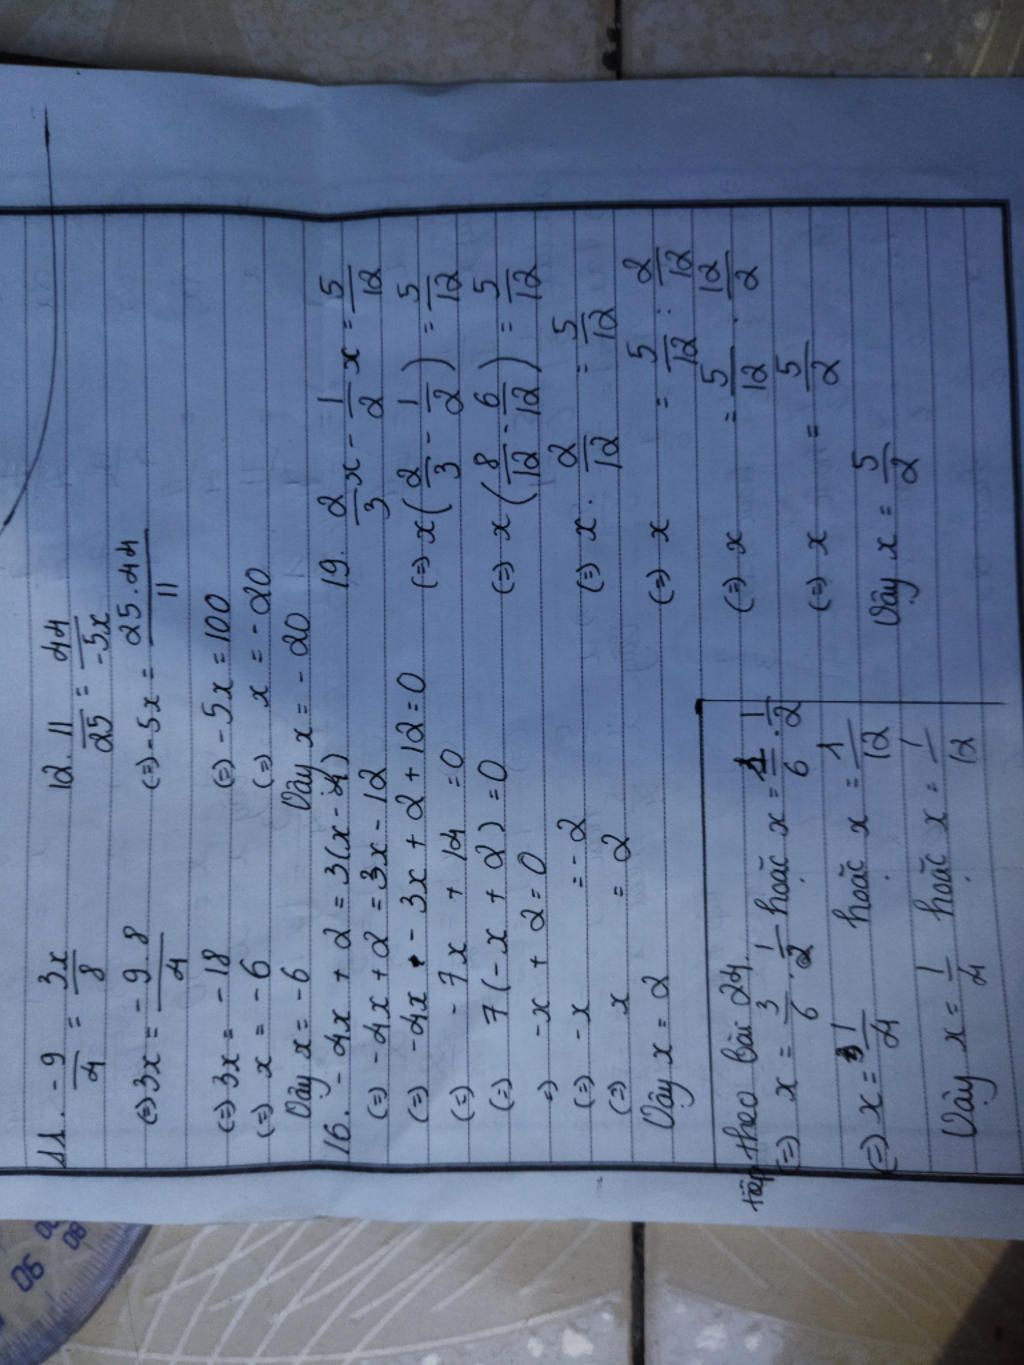 11. -9/4 = 3x/8
(=) 3x = -9.8/4
(=) 3x = -18
(=) x = -6
Vậy x = -6
12. 11/25 = 44/-5x
(=) -5x = 25.44/11
(=) -5x = 100
(=) x = -20
Vậy x = -20
16. -4x + 2 = 3(x-4)
(=) -4x + 2 = 3x - 12
(=) -4x - 3x + 2 + 12 = 0
(=) -7x + 14 = 0
(=) 7(-x + 2) = 0
=) -x + 2 = 0
(=) -x = -2
(=) x = 2
Vậy x = 2
19. 2/3 x - 1/2 x = 5/12
(=) x(2/3 - 1/2) = 5/12
(=) x(8/12 - 6/12) = 5/12
(=) x . 2/12 = 5/12
(=) x = 5/12 : 2/12
(=) x = 5/12 . 12/2
(=) x = 5/2
Vậy x = 5/2
tiếp theo bài 24.
(=) x = 3/6 . 1/2 hoặc x = 1/6 . 1/2
(=) x = 1/4 hoặc x = 1/12
Vậy x = 1/4 hoặc x = 1/12
90
80